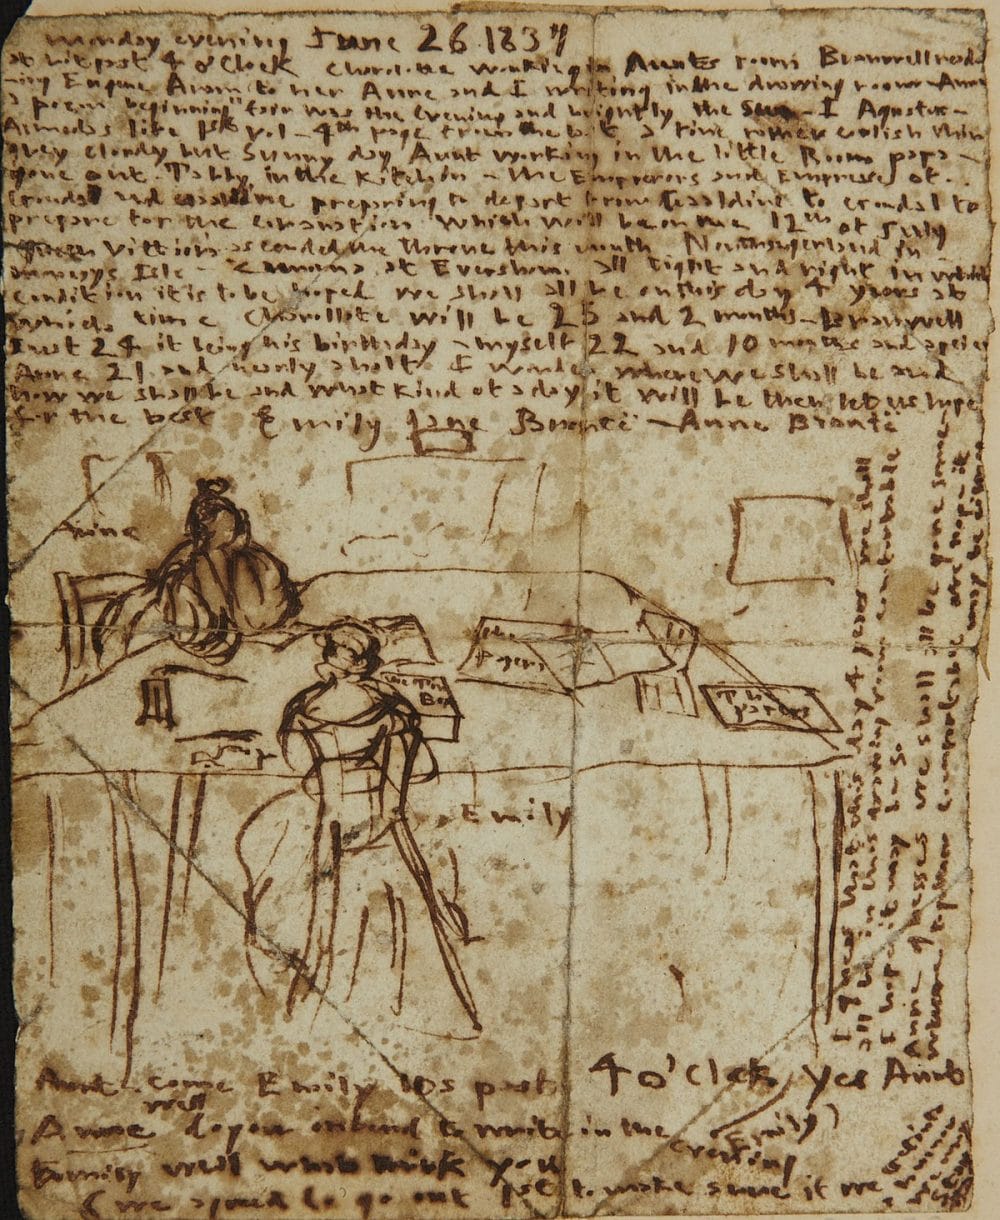 Monday evening June 26 1837
A bit past 4 o'Clock Charlotte working in Aunts room Branwell read
ing Eugene Aram to her Anne and I writing in the drawing room Anne
a poem beginning "fair was the evening and brightly the Sun — I Agustus-
Almedas life 1st vol - 4th page from the last a fine rather coolish thin
grey cloudy but Sunny day Aunt working in the little Room papa -
gone out. Tabby in the Kitchin - the Emperors and Empreses of
Gondal and Gaaldine preparing to depart from Gaaldine to Gondal to
prepare for the coranation which will be on the 12th of July
Queen Vittiora ascended the throne this month Northangerland in
Monceys Isle - Zamorna at Eversham. all tight and right in which
condition it is to be hoped we shall all be on this day 4 years at
which time Charollote will be 25 and 2 months - Branwell
just 24 it being his birthday - myself 22 and 10 months and a peice
Anne 21 and nearly a half I wonder where we shall be and
how we shall be and what kind of a day it will be then let us hope
for the best Emily Jane Brontë - Anne Brontë
Anne
The
Papers
The Tin
Box
The
papers
Emily
I guess that this day 4 years we shall
all be in this drawing room comfortable
I hope it may be so
Anne guesses we shall all be gone somewhere
together comfortable we hope it
may be
Aunt. Come Emily its past 4 o'Clock, Yes Aunt
Emily)
Anne well do you intend to write in the
evening
Emily well what think you
(we agreed to go out 1st to make sure if we